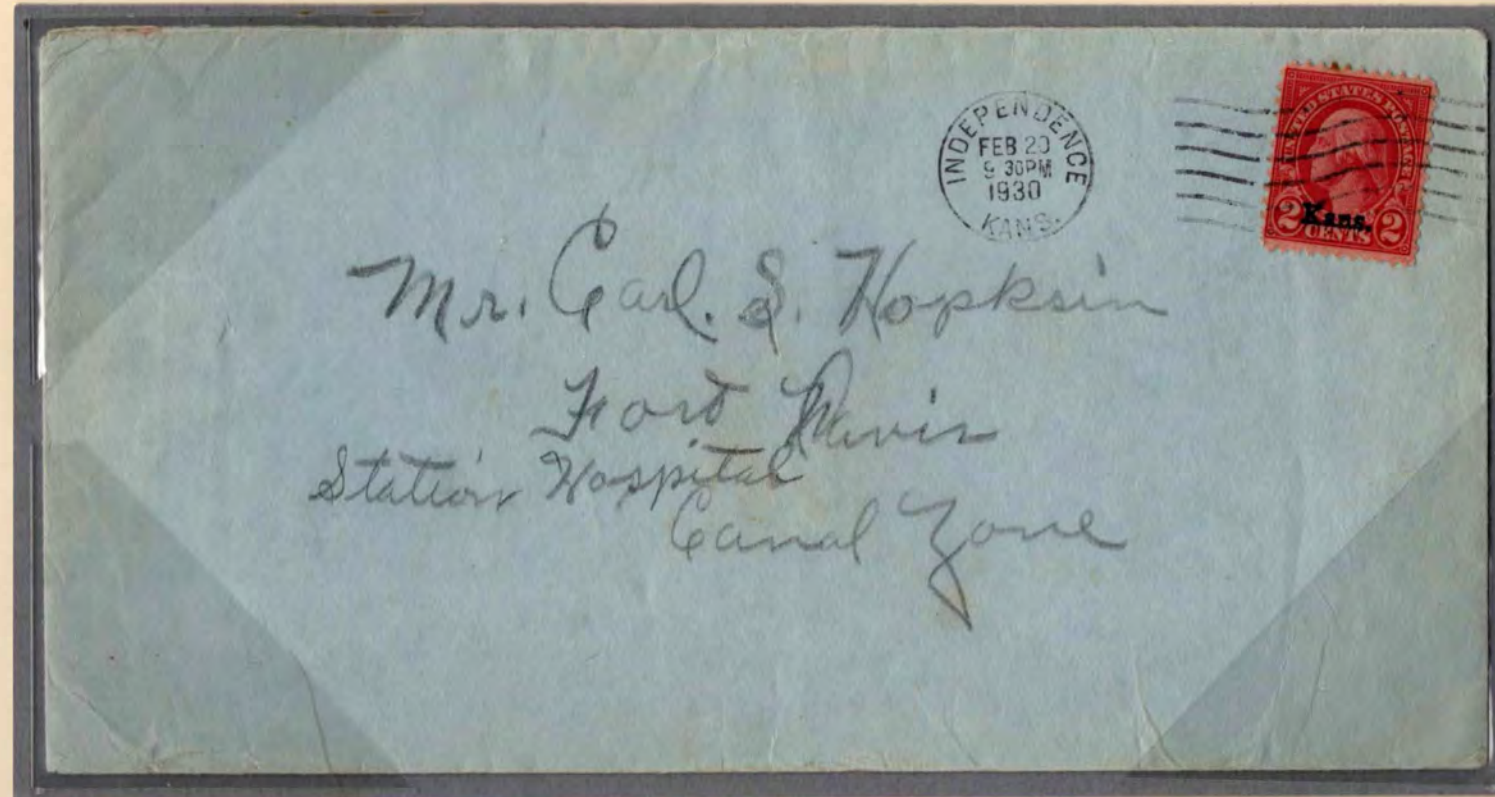 INDEPENDENCE
FEB 20
9 30PM
1930
KANS.
UNITED STATES POSTAGE
Kans.
2 CENTS 2
Mr. Carl. S. Hopksin
Fort Davis
Station Hospital
Canal Zone